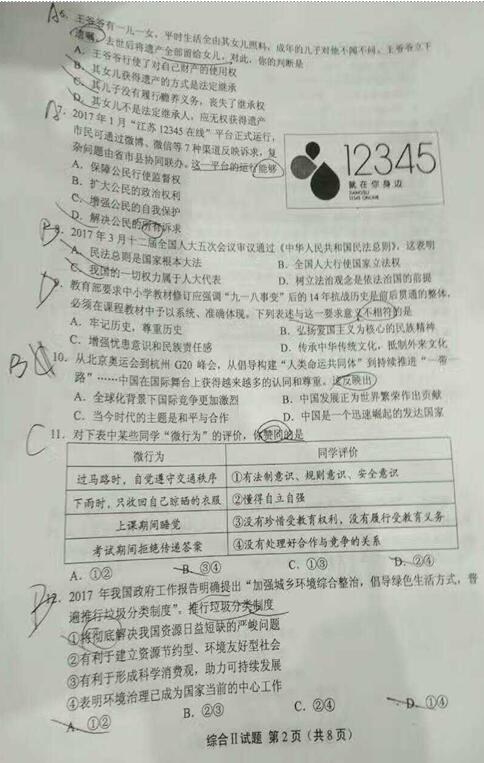 A6. 王爷爷有一儿一女，平时生活全由其女儿照料，成年的儿子对他不闻不问。王爷爷立下
遗嘱，去世后将遗产全部留给女儿，对此，你的判断是
A．王爷爷行使了对自己财产的使用权
B．其女儿获得遗产的方式是法定继承
C．其儿子没有履行赡养义务，丧失了继承权
D．其女儿不是法定继承人，应无权获得遗产
A7. 2017 年 1 月“江苏 12345 在线”平台正式运行，
市民可通过微博、微信等 7 种渠道反映诉求，复
杂问题由省市县协同联办。这一平台的运行能够
A．保障公民行使监督权
B．扩大公民的政治权利
C．增强公民的自我保护
D．解决公民的所有诉求
12345
就在你身边
JIANGSU
12345 ONLINE
B8. 2017 年 3 月十二届全国人大五次会议审议通过《中华人民共和国民法总则》，这表明
A．民法总则是国家根本大法
B．全国人大行使国家立法权
C．我国的一切权力属于人大代表
D．树立法治观念是依法治国的前提
D9. 教育部要求中小学教材修订应强调“九一八事变”后的 14 年抗战历史是前后贯通的整体，
必须在课程教材中予以系统、准确体现。下列表述与这一要求意义不相符的是
A．牢记历史，尊重历史
B．弘扬爱国主义为核心的民族精神
C．增强忧患意识和民族责任感
D．传承中华传统文化，抵制外来文化
B 10．从北京奥运会到杭州 G20 峰会，从倡导构建“人类命运共同体”到持续推进“一带一
路”……中国在国际舞台上获得越来越多的认同和尊重。这反映出
A．全球化背景下国际竞争更加激烈
B．中国发展正为世界繁荣作出贡献
C．当今时代的主题是和平与合作
D．中国是一个迅速崛起的发达国家
C 11．对下表中某些同学“微行为”的评价，你赞同的是
微行为 同学评价
过马路时，自觉遵守交通秩序 ①有法制意识、规则意识、安全意识
下雨时，只收回自己晾晒的衣服 ②懂得自立自强
上课期间睡觉 ③没有珍惜受教育权利，没有履行受教育义务
考试期间拒绝传递答案 ④没有处理好合作与竞争的关系
A．①② B．③④ C．①③ D．②④
B12．2017 年我国政府工作报告明确提出“加强城乡环境综合整治，倡导绿色生活方式，普
遍推行垃圾分类制度”。推行垃圾分类制度
①将彻底解决我国资源日益短缺的严峻问题
②有利于建立资源节约型、环境友好型社会
③有利于形成科学消费观，助力可持续发展
④表明环境治理已成为国家当前的中心工作
A．①② B．②③ C．②④ D．①④
综合Ⅱ试题 第 2 页（共 8 页）